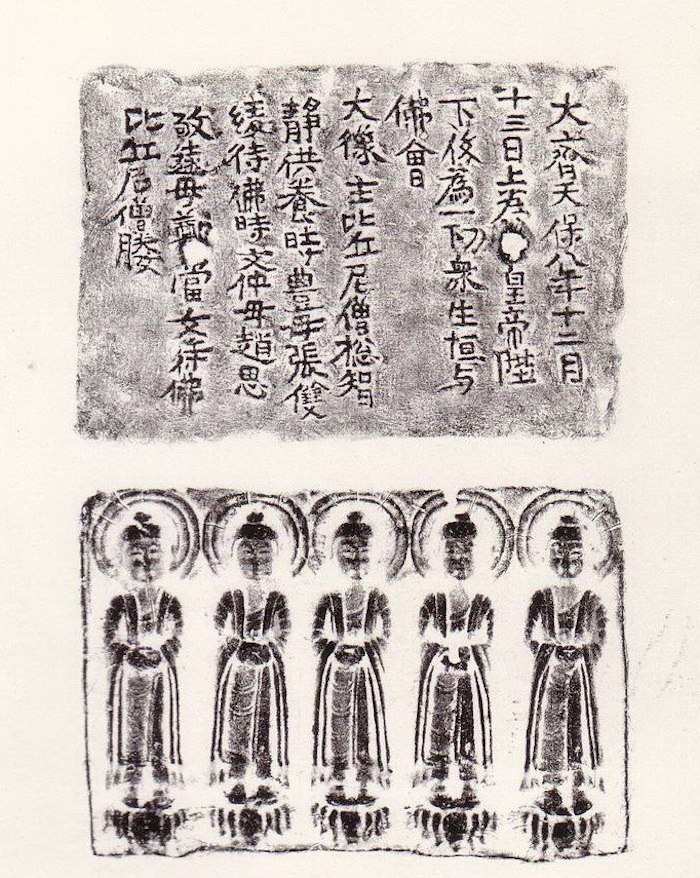 大齊天保八年十二月
十三日上為皇帝陛
下後為一切衆生恒与
佛會
大像主比丘尼僧惣智
静供養時豊母張雙
綾待佛時文仲母趙思
敬遠母鄭當女待佛
比丘尼僧